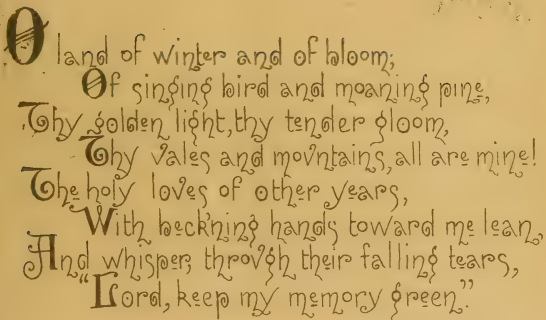 O land of winter and of bloom;
Of singing bird and moaning pine,
Thy golden light, thy tender gloom,
Thy vales and movntains, all are mine!
The holy loves of other years,
With beck'ning hands toward me lean,
And whisper, throvgh their falling tears,
"Lord, keep my memory green."